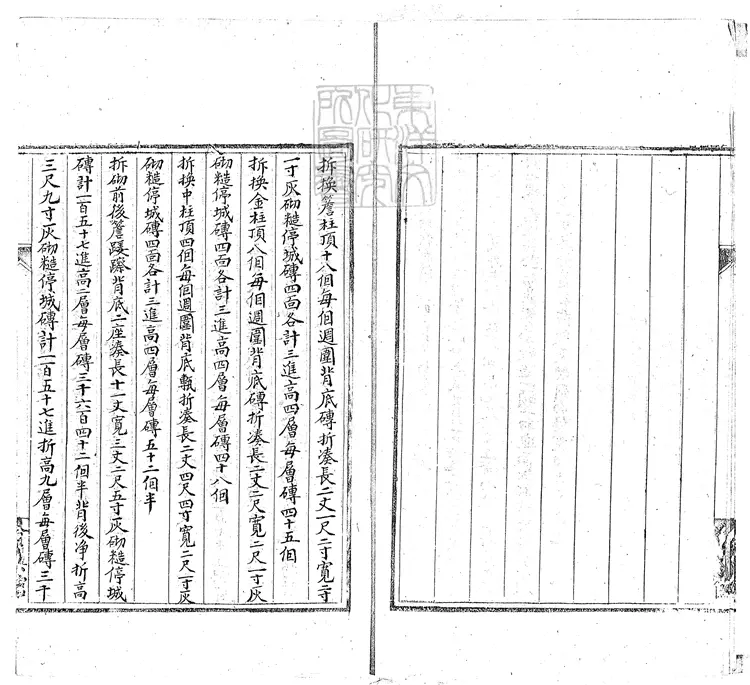 拆換簷柱頂十八個每個週圍背底磚折湊長二丈一尺二寸寬二寸
一寸灰砌糙停城磚四面各計三進高四層每層磚四十五個
拆換金柱頂八個每個週圍背底磚折湊長二丈二尺寬二尺一寸灰
砌糙停城磚四面各計三進高四層每層磚四十八個
拆換中柱頂四個每個週圍背底甎折湊長二丈四尺四寸寬二尺一寸灰
砌糙停城磚四面各計三進高四層每層磚五十二個半
拆砌前後簷踩躒背底二座湊長十一丈寬三丈二尺五寸灰砌糙停城
磚計一百五十七進高二層每層磚三千六百四十二個半背後淨折高
三尺九寸灰砌糙停城磚計一百五十七進折高九層每層磚三千